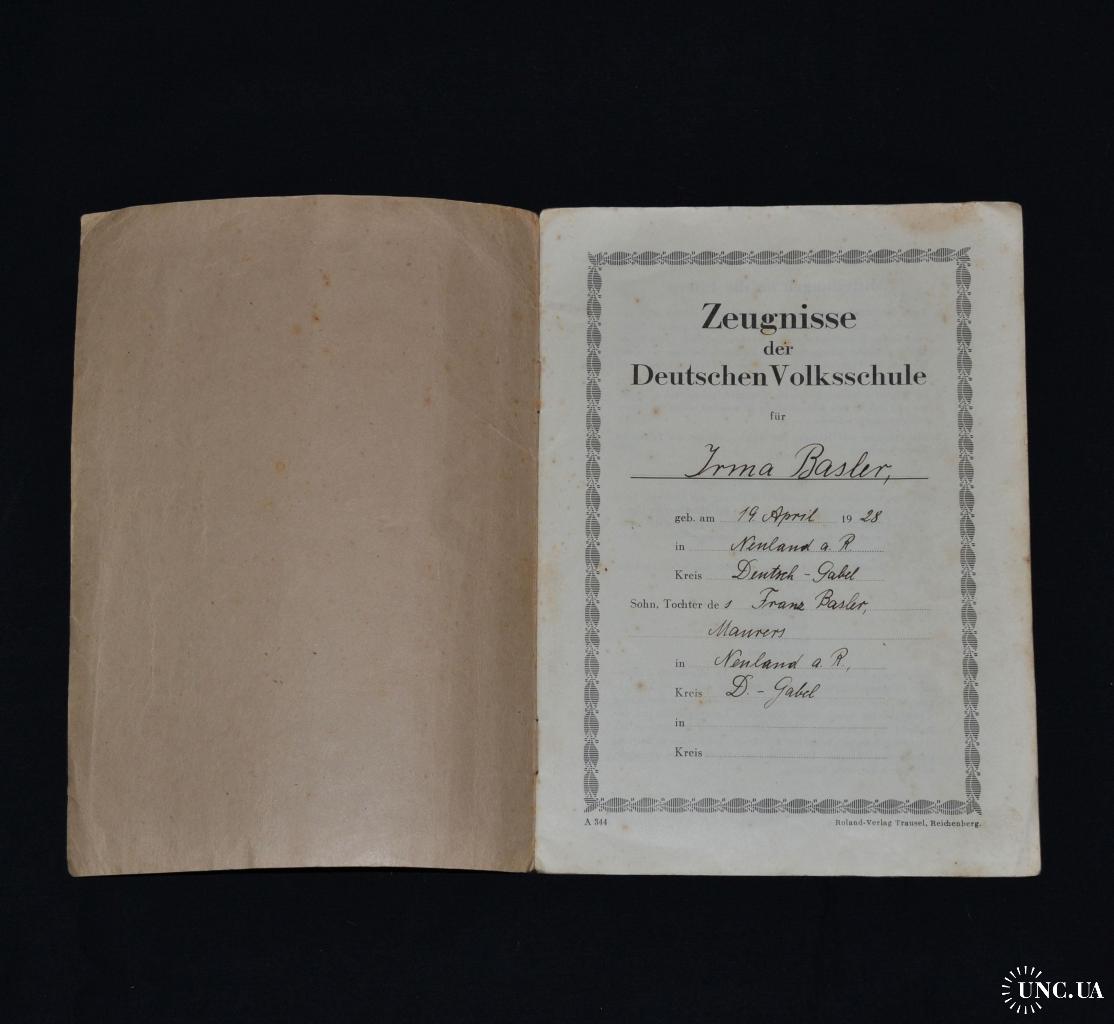 Zeugnisse
der
Deutschen Volksschule
für
Irma Basler,
geb. am 19. April 1928
in Neuland a. R.
Kreis Deutsch-Gabel
Sohn, Tochter des Franz Basler,
Maurers
in Neuland a. R.,
Kreis D.-Gabel
in
Kreis
A 344 Roland-Verlag Trausel, Reichenberg.
UNC.UA